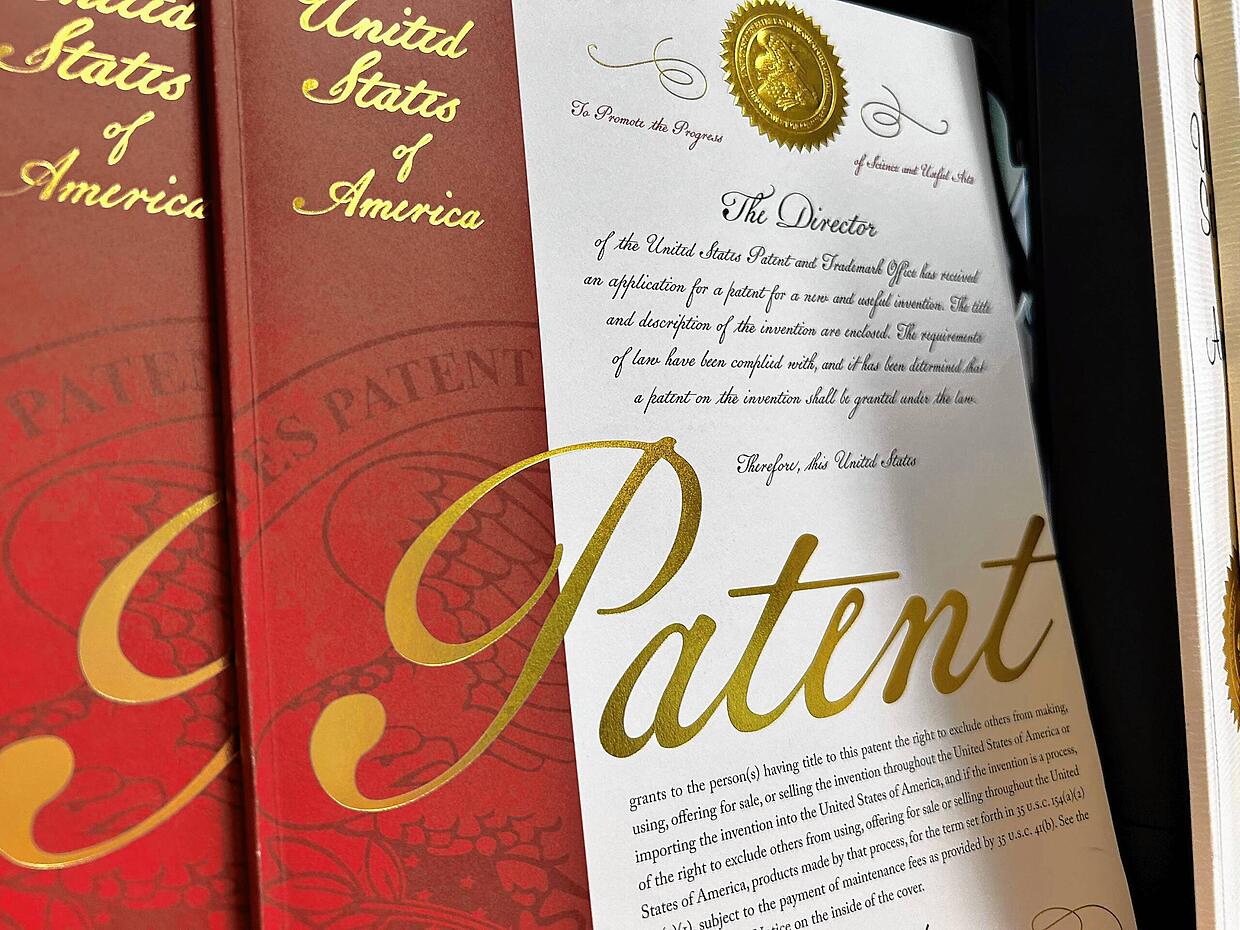 United
States
of
America
United
States
of
America
PATEN
ES PATENT
To Promote the Progress
of Science and Useful Arts
The Director
of the United States Patent and Trademark Office has received
an application for a patent for a new and useful invention. The title
and description of the invention are enclosed. The requirements
of law have been complied with, and it has been determined that
a patent on the invention shall be granted under the law.
Therefore, this United States
Patent
grants to the person(s) having title to this patent the right to exclude others from making,
using, offering for sale, or selling the invention throughout the United States of America or
importing the invention into the United States of America, and if the invention is a process,
of the right to exclude others from using, offering for sale or selling throughout the United
States of America, products made by that process, for the term set forth in 35 U.S.C. 154(a)(2)
subject to the payment of maintenance fees as provided by 35 U.S.C. 41(b). See the
on the inside of the cover.